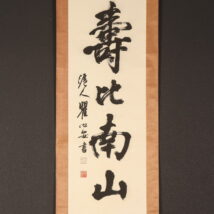 壽比南山
清人瞿心安書